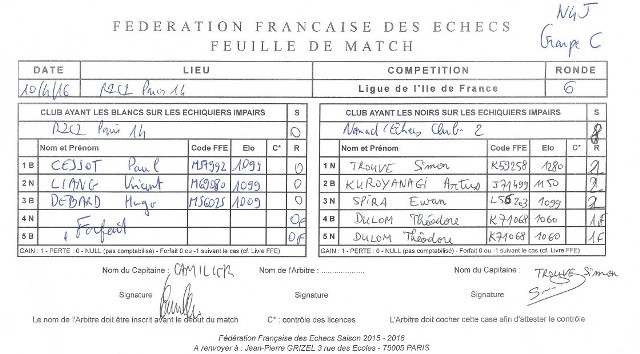 FEDERATION FRANCAISE DES ECHECS
FEUILLE DE MATCH
N4J
Groupe C
DATE LIEU COMPETITION RONDE
10/4/16 R2C2 Paris 14 Ligue de l'Ile de France 6
CLUB AYANT LES BLANCS SUR LES ECHIQUIERS IMPAIRS S
R2C2 Paris 14 0
Nom et Prénom Code FFE Elo C* R
1 B CESSOT Paul M57992 1099 0
2 N LIANG Vincent M69580 1099 0
3 B DEBARD Hugo M56025 1009 0
4 N Forfait 0F
5 B 0F
GAIN : 1 - PERTE : 0 - NULL (pas comptabilisé) - Forfait 0 ou -1 suivant le cas (cf. Livre FFE)
CLUB AYANT LES NOIRS SUR LES ECHIQUIERS IMPAIRS S
Nomad'Echecs Club 2 8
Nom et Prénom Code FFE Elo C* R
1 N TROUVE Simon K59258 1280 2
2 B KUROYANAGI Artus J71499 1150 2
3 N SPIRA Ewan L56203 1099 2
4 B DULOM Théodore K71068 1060 1F
5 N DULOM Théodore K71068 1060 1F
GAIN : 1 - PERTE : 0 - NULL (pas comptabilisé) - Forfait 0 ou -1 suivant le cas (cf. Livre FFE)
Nom du Capitaine : CAMILLER Nom de l'Arbitre : Nom du Capitaine : TROUVE Simon
Signature Signature Signature
Le nom de l'Arbitre doit être inscrit avant le début du match C* : contrôle des licences L'Arbitre doit cocher cette case afin d'attester le contrôle
Fédération Française des Echecs Saison 2015 - 2016
A renvoyer à : Jean-Pierre GRIZEL 3 rue des Eccles - 75005 PARIS